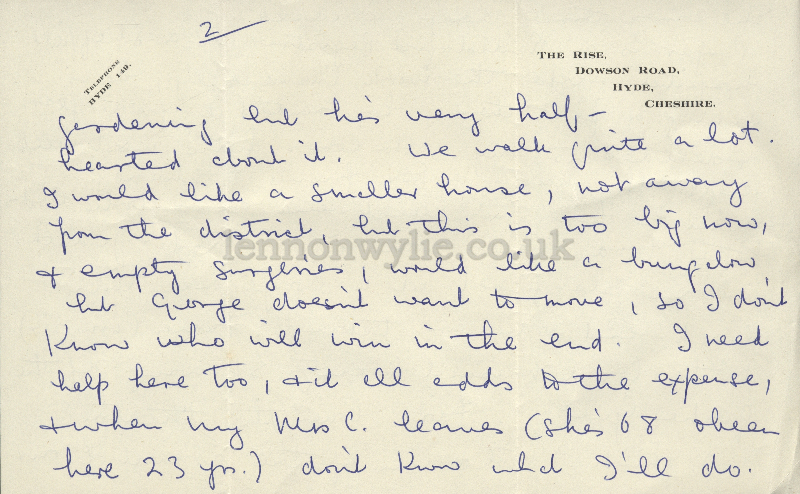 2
TELEPHONE
HYDE 149.
THE RISE,
DOWSON ROAD,
HYDE,
CHESHIRE.
gardening but he's very half-
hearted about it. We walk quite a lot.
I would like a smaller house, not away
from the district, but this is too big now,
& empty surgeries, would like a bungalow
but George doesn't want to move, so I don't
know who will win in the end. I need
help here too, & it all adds to the expense,
& when my Mrs C. leaves (she's 68 & been
here 23 yrs.) don't know what I'll do.
lennonwylie.co.uk